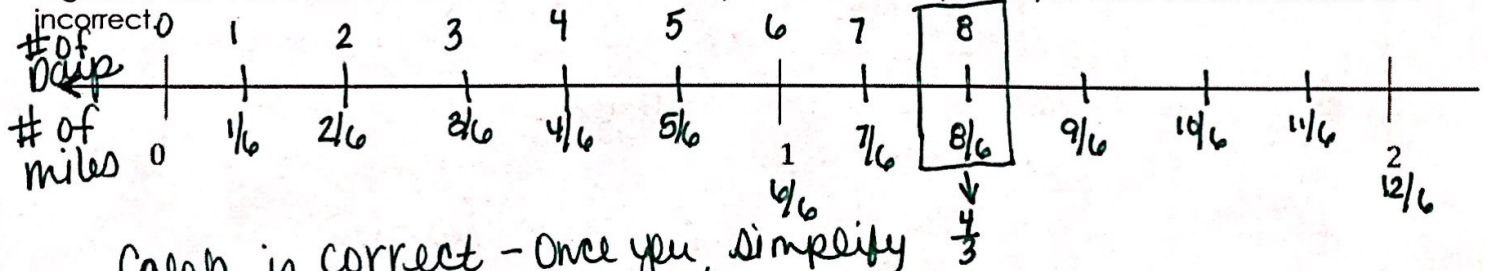 incorrect.
# of days
0 1 2 3 4 5 6 7 8
# of miles
0 1/6 2/6 3/6 4/6 5/6 1 7/6 8/6 9/6 10/6 11/6 2
6/6 12/6
4/3
Caleb is correct - Once you simplify